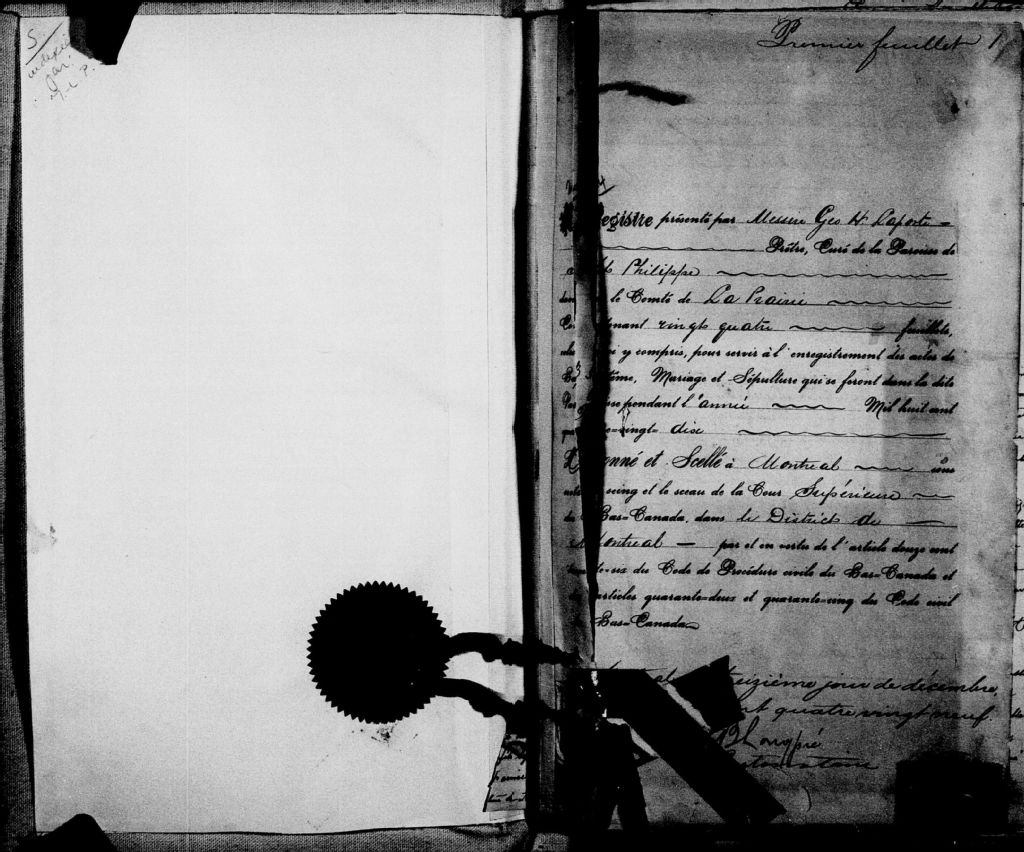 5
indexé
par
Premier feuillet 1
egistre présenté par Messire Geo H Laporte
Prêtre, Curé de la Paroisse de
Philippe
le Comté de La Prairie
nant vingt quatre feuillets,
i y compris, pour servir à l'enregistrement des actes de
tême, Mariage et Sépulture qui se feront dans la dite
sse pendant l'année Mil huit cent
vingt dix
onné et Scellé à Montreal sous
seing et le sceau de la Cour Supérieure
Bas-Canada, dans le District de
Montreal par et en vertu de l'article douze cent
six du Code de Procédure civile du Bas-Canada et
articles quarante-deux et quarante-cinq du Code civil
Bas-Canada
eizième jour de décembre
nt quatre vingt neuf
Longpré